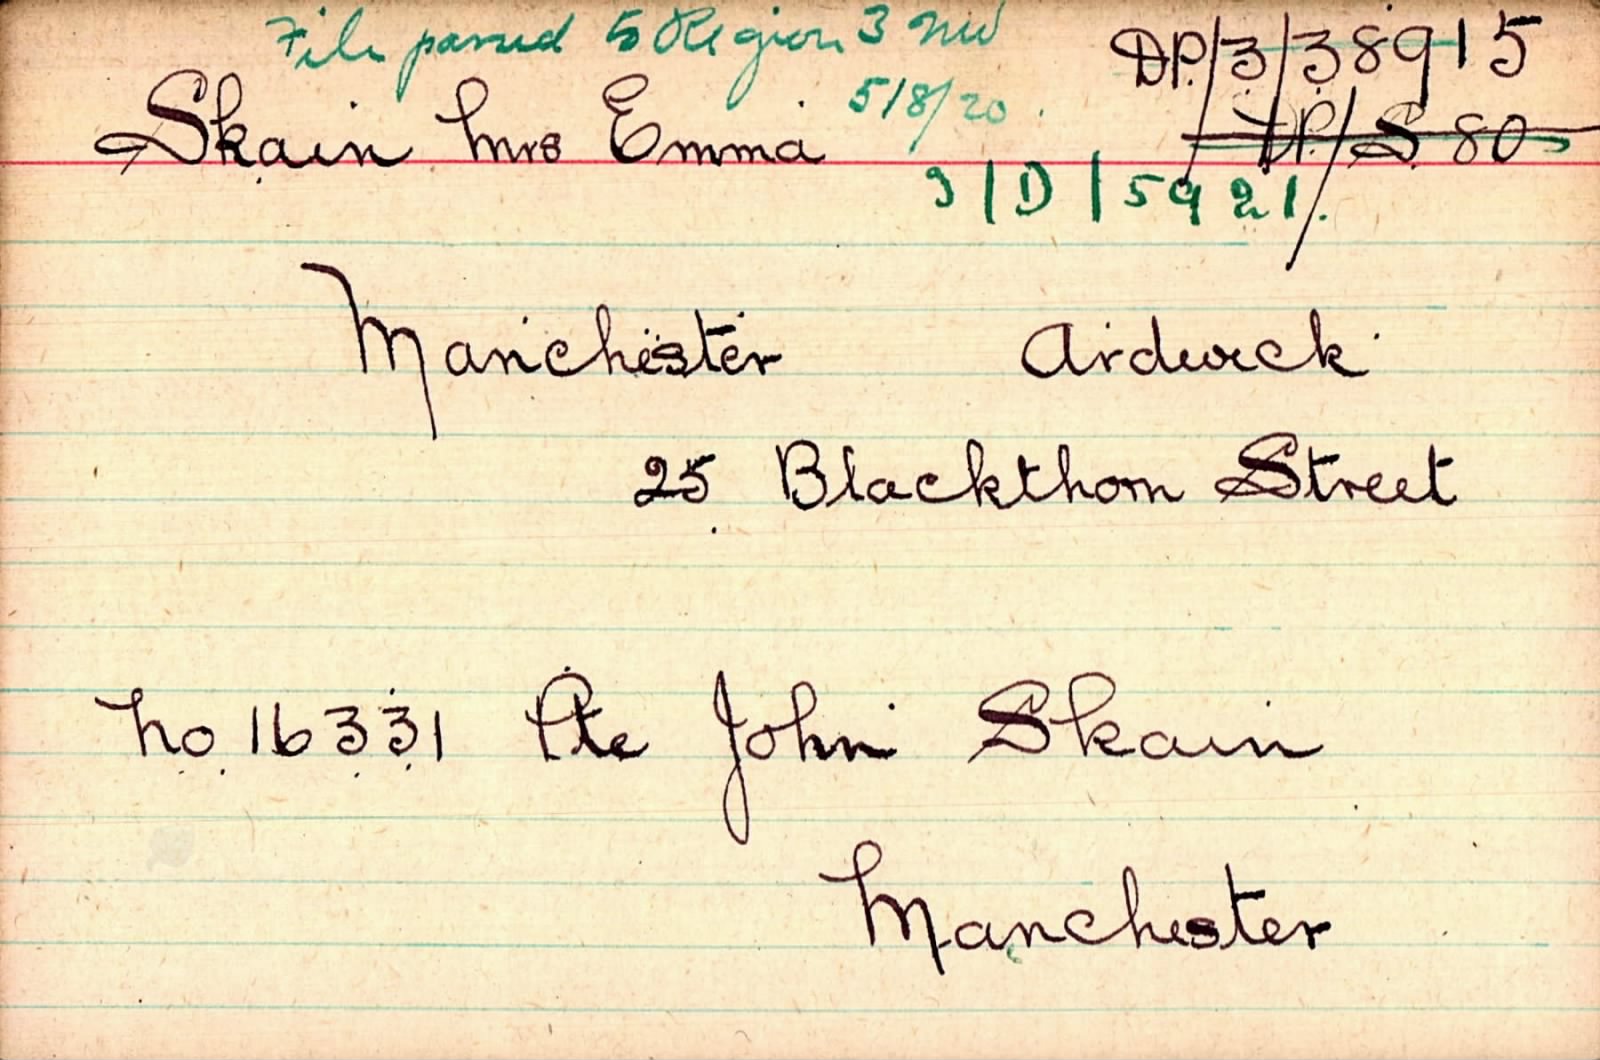 File passed to Region 3 NW
DP/3/38915
Skain Mrs Emma
5/8/20
DP/S 80
3/D/5921.
Manchester Ardwick
25 Blackthorn Street
No 16331 Pte John Skain
Manchester